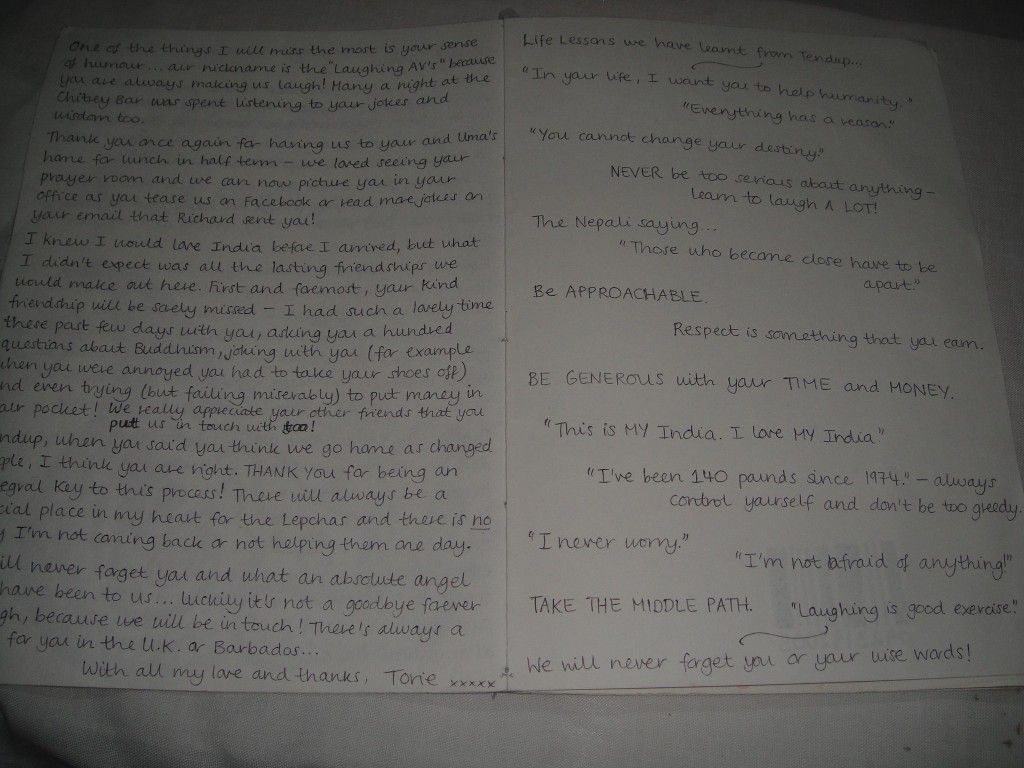 One of the things I will miss the most is your sense
of humour... our nickname is the "Laughing AV's" because
you are always making us laugh! Many a night at the
Chitrey Bar was spent listening to your jokes and
wisdom too.
Thank you once again for having us to your and Uma's
home for lunch in half term - we loved seeing your
prayer room and we can now picture you in your
office as you tease us on Facebook or read more jokes on
your email that Richard sent you!
I knew I would love India before I arrived, but what
I didn't expect was all the lasting friendships we
would make out here. First and foremost, your kind
friendship will be sorely missed - I had such a lovely time
these past few days with you, asking you a hundred
questions about Buddhism, joking with you (for example
when you were annoyed you had to take your shoes off)
nd even trying (but failing miserably) to put money in
our pocket! We really appreciate your other friends that you
put us in touch with too!
ndup, when you said you think we go home as changed
ple, I think you are right. THANK YOU for being an
egral key to this process! There will always be a
cial place in my heart for the Lepchas and there is no
y I'm not coming back or not helping them one day.
ill never forget you and what an absolute angel
have been to us... luckily it's not a goodbye forever
gh, because we will be in touch! There's always a
for you in the U.K. or Barbados...
With all my love and thanks, Torie xxxxx
Life Lessons we have learnt from Tendup...
"In your life, I want you to help humanity."
"Everything has a reason."
"You cannot change your destiny."
NEVER be too serious about anything -
learn to laugh A LOT!
The Nepali saying...
"Those who become close have to be
apart."
Be APPROACHABLE.
Respect is something that you earn.
BE GENEROUS with your TIME and MONEY.
"This is MY India. I love MY India"
"I've been 140 pounds since 1974." - always
control yourself and don't be too greedy.
"I never worry."
"I'm not afraid of anything!"
TAKE THE MIDDLE PATH. "Laughing is good exercise."
We will never forget you or your wise words!